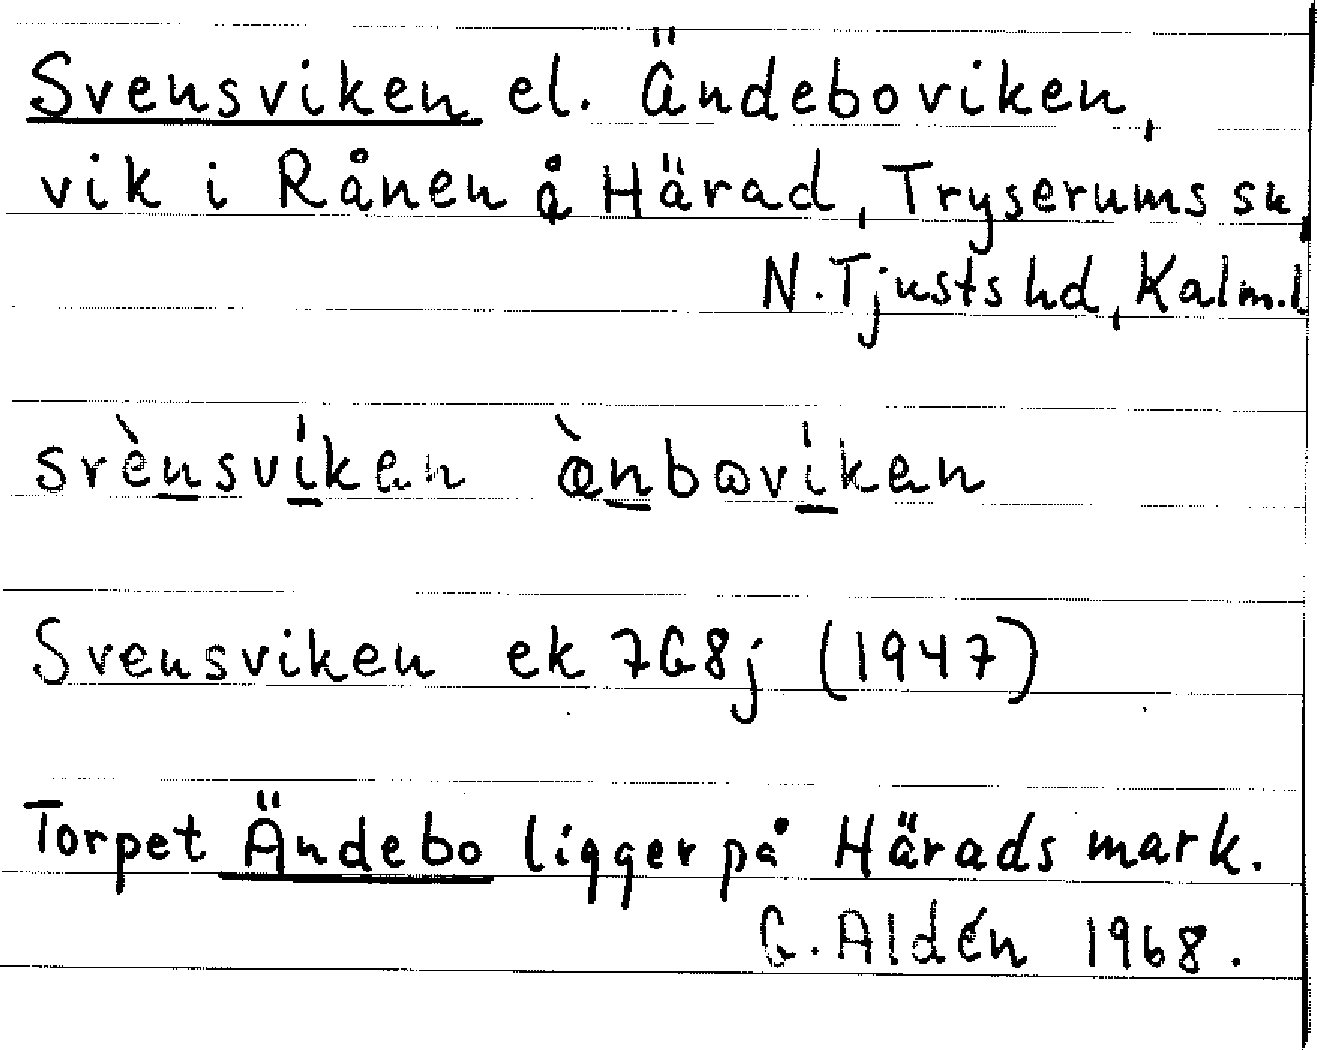 Svensviken el. Ändeboviken,
vik i Rånen å Härad, Tryserums sn,
N. Tjusts hd, Kalm.l
svènsvíken ǽnbovíken
Svensviken ek 7G8j (1947)
Torpet Ändebo ligger på Härads mark.
G. Aldén 1968.